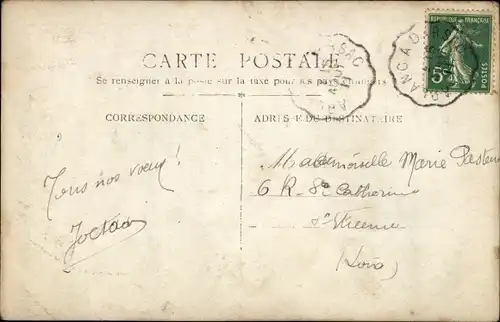 CARTE POSTALE
Se renseigner à la poste sur la taxe pour les pays étrangers
CORRESPONDANCE
ADRESSE DU DESTINATAIRE
Tous nos vœux !
Mademoiselle Marie
6 R. Ste Catherine
St Etienne
(Loire)
5c
POSTES